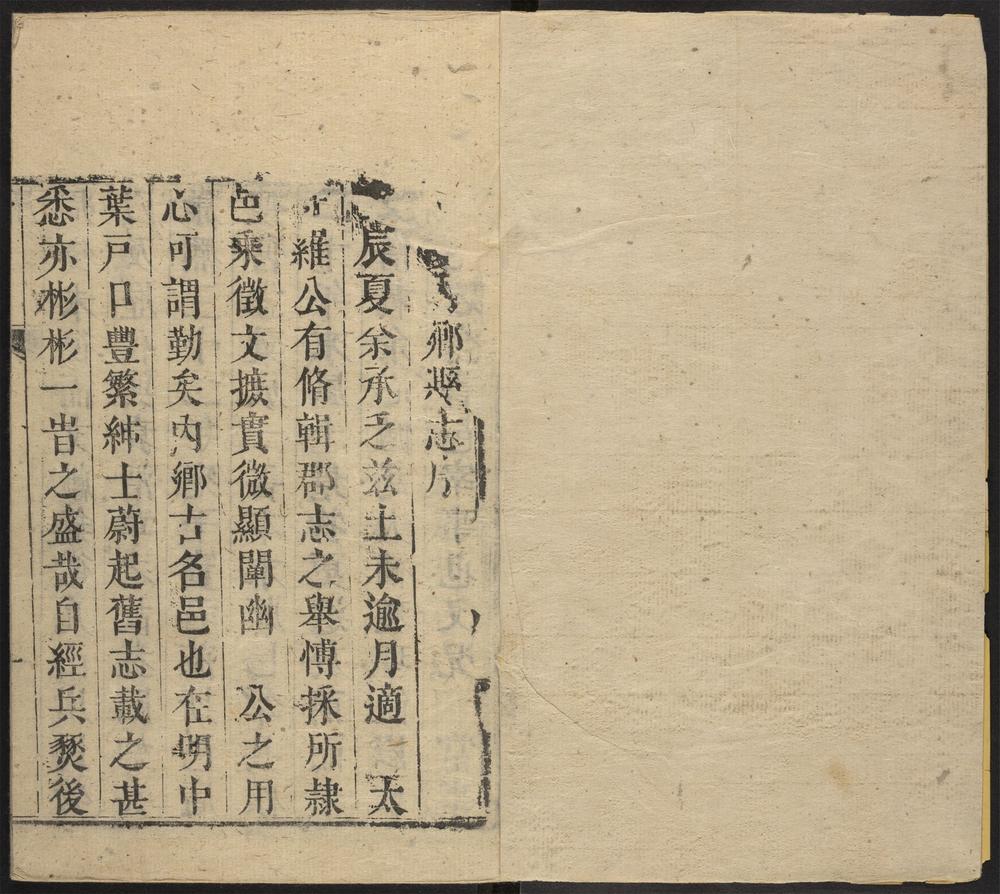 鄉縣志序
辰夏余承乏茲土未逾月適　太
維公有脩輯郡志之舉博採所隸
邑乘徵文摭實微顯闡幽　公之用
心可謂勤矣內鄉古名邑也在明中
葉戶口豐繁紳士蔚起舊志載之甚
悉亦彬彬一旹之盛哉自經兵燹後